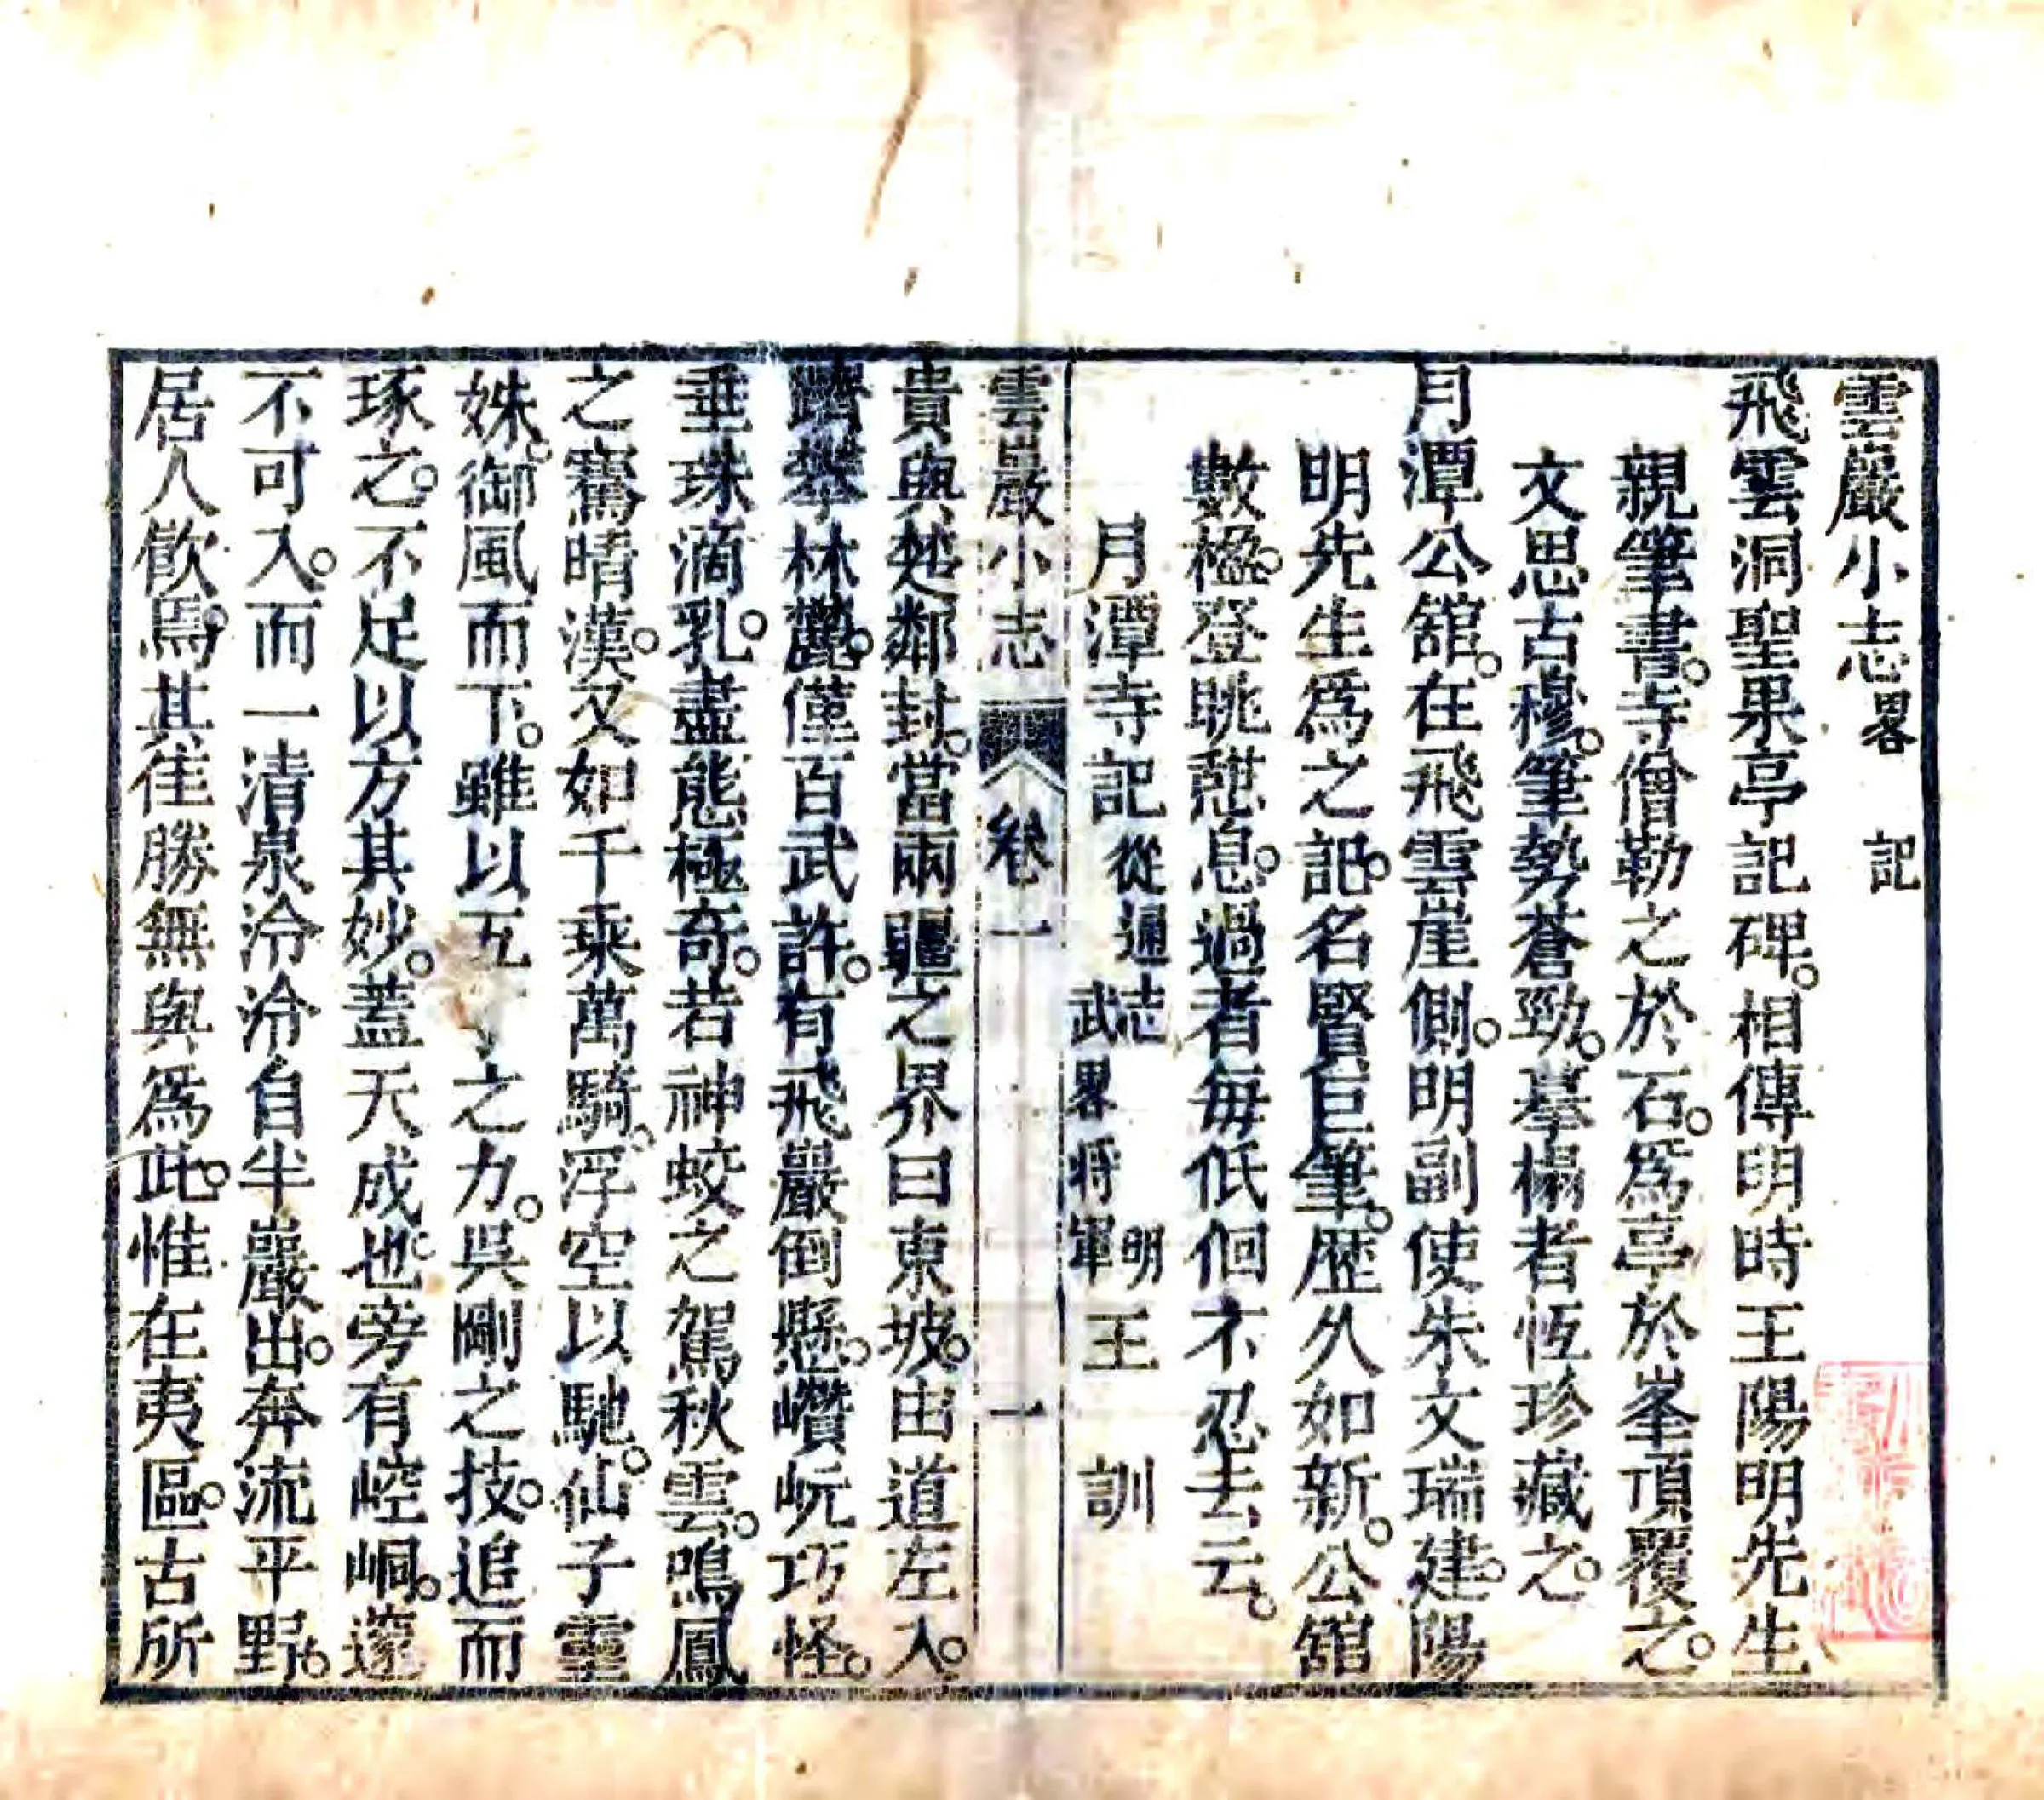 雲巖小志畧 記
飛雲洞聖果亭記碑。相傳明時王陽明先生
親筆書。寺僧勒之於石。為亭於峯頂覆之。
文思古穆。筆勢蒼勁。摹搨者恆珍藏之。
月潭公舘。在飛雲崖側。明副使朱文瑞建。陽
明先生為之記。名賢巨筆。歷久如新。公舘
數楹。登眺憩息。過者每低佪不忍去云。
月潭寺記從通志 明武畧將軍王訓
雲巖小志 卷一 一
貴與楚鄰封。當兩疆之界曰東坡。由道左入。
躋攀林麓。僅百武許。有飛巖倒懸。巑岏巧怪。
垂珠滴乳。盡態極奇。若神蛟之駕秋雲。鳴鳳
之騫晴漢。又如千乘萬騎。浮空以馳。仙子靈
姝。御風而下。雖以五丁之力。吳剛之技。追而
琢之。不足以方其妙。蓋天成也。旁有崆峒。邃
不可入。而一清泉泠泠自半巖出。奔流平野。
居人飲焉。其佳勝無與為此。惟在夷區。古所